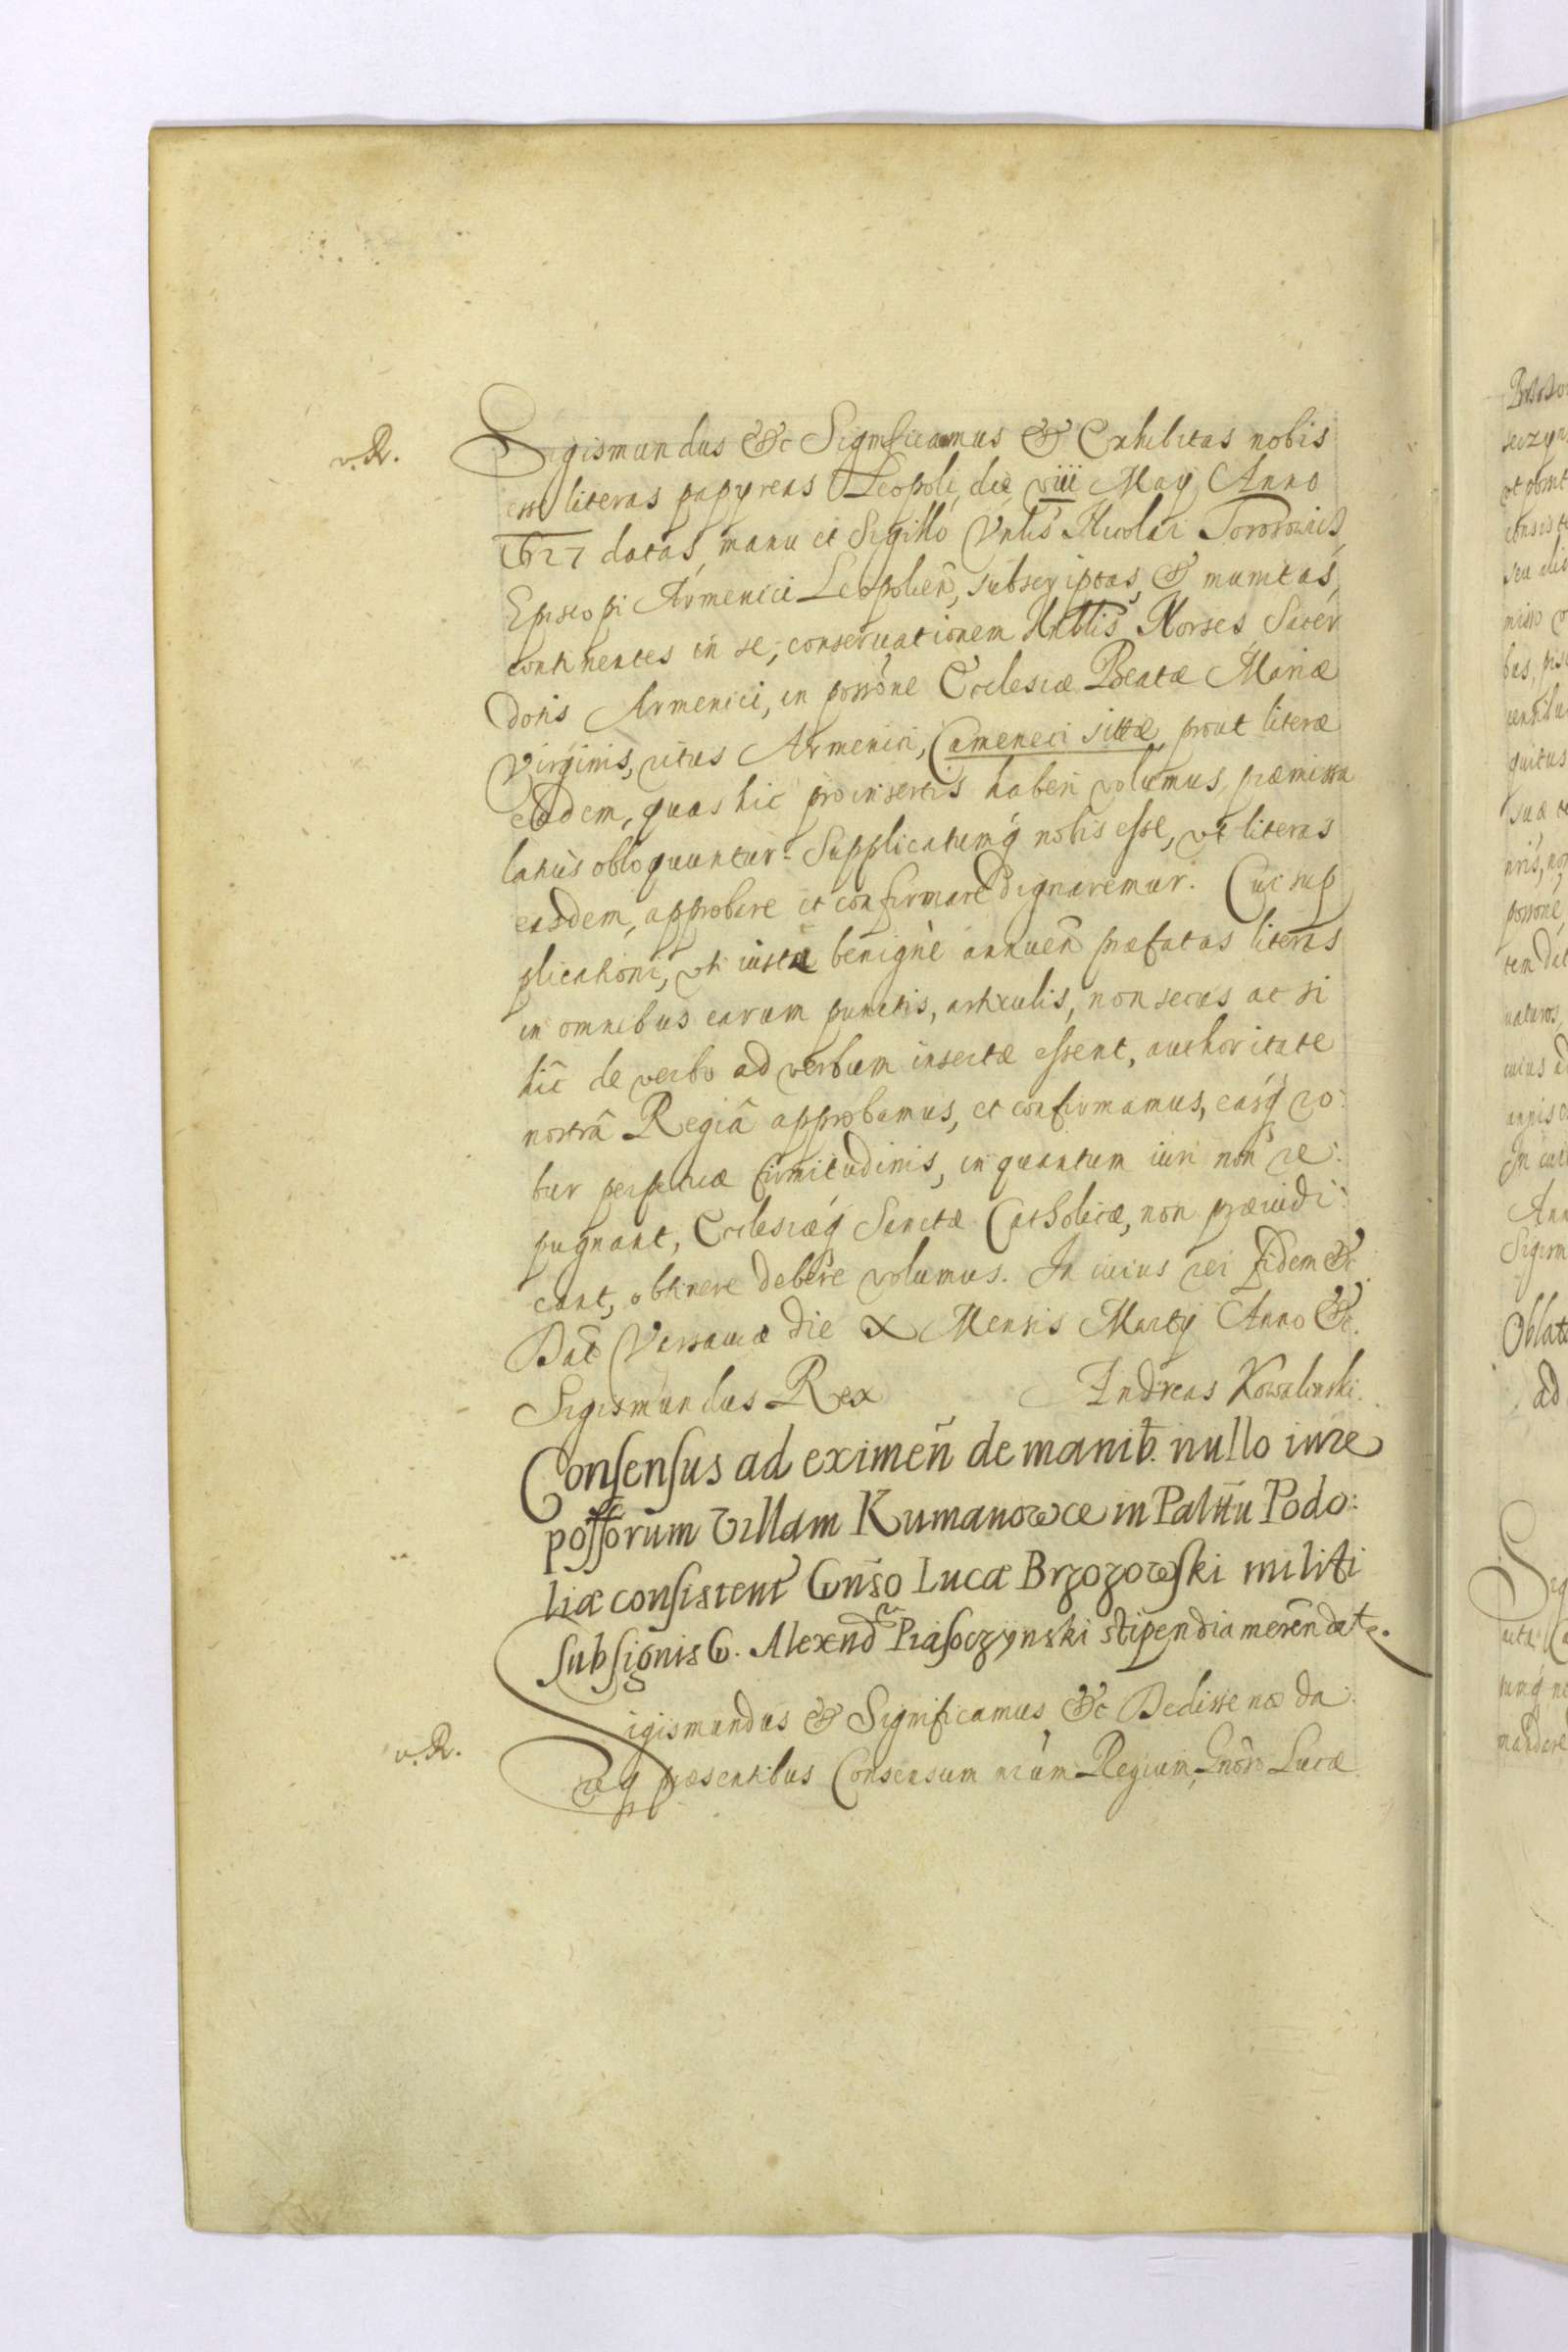 v. R.
Sigismundus &c Significamus &c Exhibitas nobis
esse literas papyreas Leopoli, die viii May Anno
1627 datas, manu et Sigillo Vnlis Nicolai Torosowicz,
Episcopi Armenici Leopolieñ, subscriptas, & munitas,
continentes in se, conseruationem Hnblis Norses Sacer
dotis Armenici, in possone Ecclesiæ Beatæ Mariæ
Virginis, ritus Armenici, Cameneci sittæ, prout literæ
eædem, quas hic pro insertis haberi volumus, præmissa
latius obloquuntur. Supplicatumq nobis esse, vt literas
easdem, approbare et confirmare dignaremur. Cui sup
plicationi, vti iustæ benignè annueñ præfatas literas
in omnibus earum punctis, articulis, non secus ac si
hic de verbo ad verbum insertæ essent, authoritate
nostrâ Regiâ approbamus, et confirmamus, easq ro:
bur perpetuæ firmitudinis, in quantum iuri non re:
pugnant, Ecclesiæq Sanctæ Catholicæ, non præiudi:
cant, obtinere debere volumus. In cuius rei fidem &c
Dat Varsauiæ die X Mensis Martij Anno &c.
Sigismundus Rex Andreas Kowalinski.
Consensus ad eximeñ de manib. nullo iure
possorum Villam Kumanowce in Palttu Podo:
liæ consistent Gnso Lucæ Brzozowski militi
sub signis G. Alexnd Piasoczynski stipendia meren dat.
v. R.
Sigismundus &c Significamus &c Dedisse nos da:
req præsentibus Consensum nrum Regium, Gnoso Lucæ